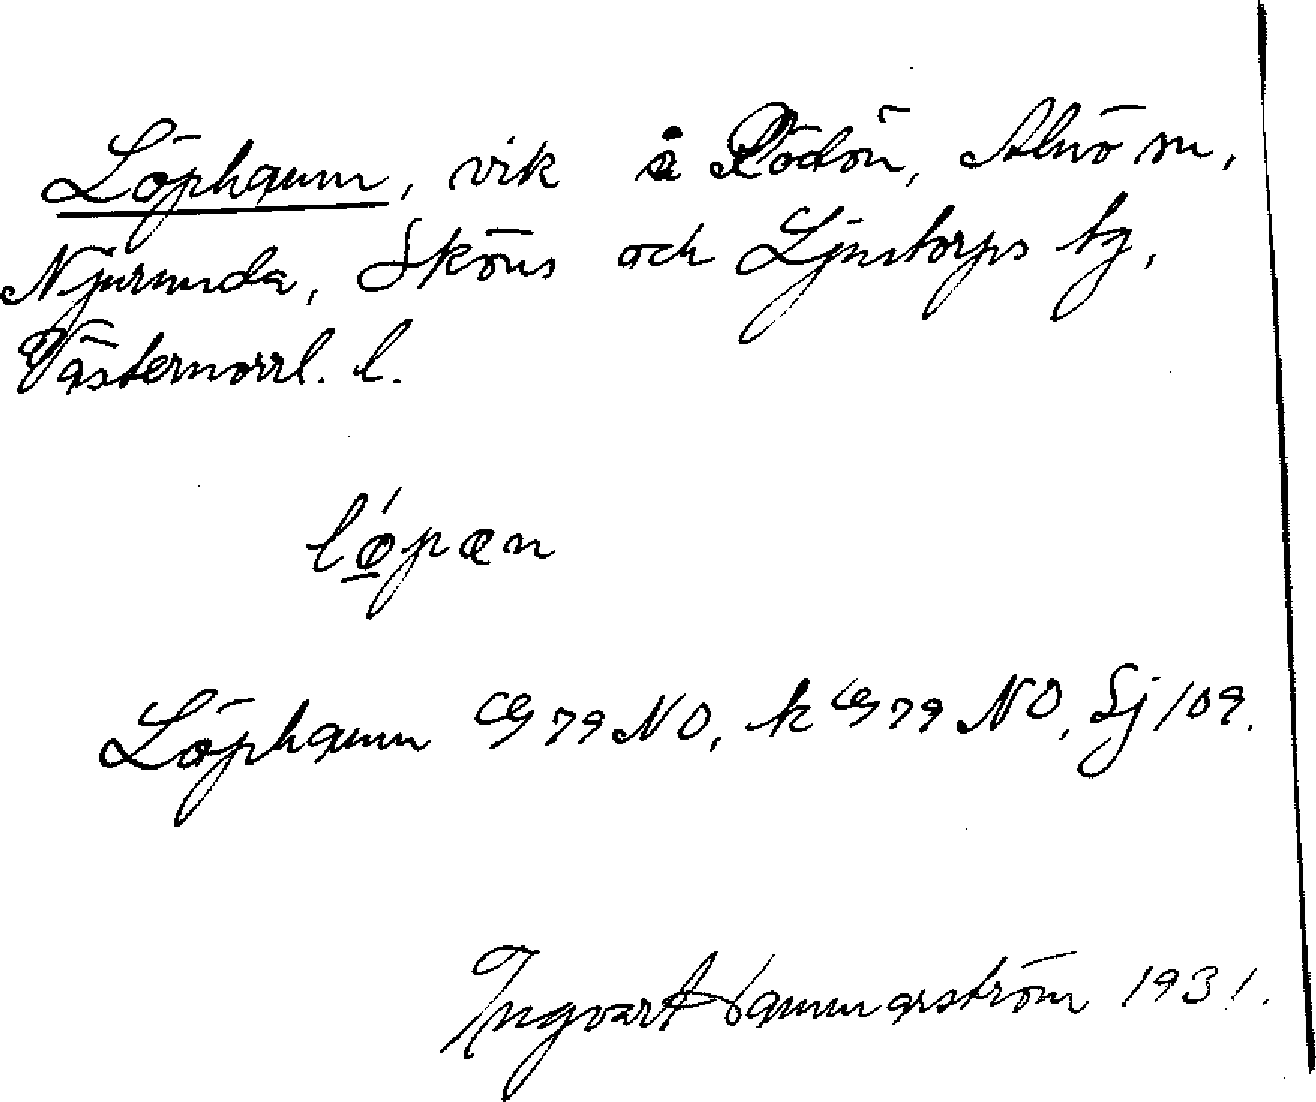 Löphamn, vik å Rödön, Alnö sn,
Njurunda, Sköns och Ljustorps tg,
Västernorrl. l.
løpan
Löphamn G 79 NO, k G 79 NO, Sj 109.
Ingvart Hammarström 1931.